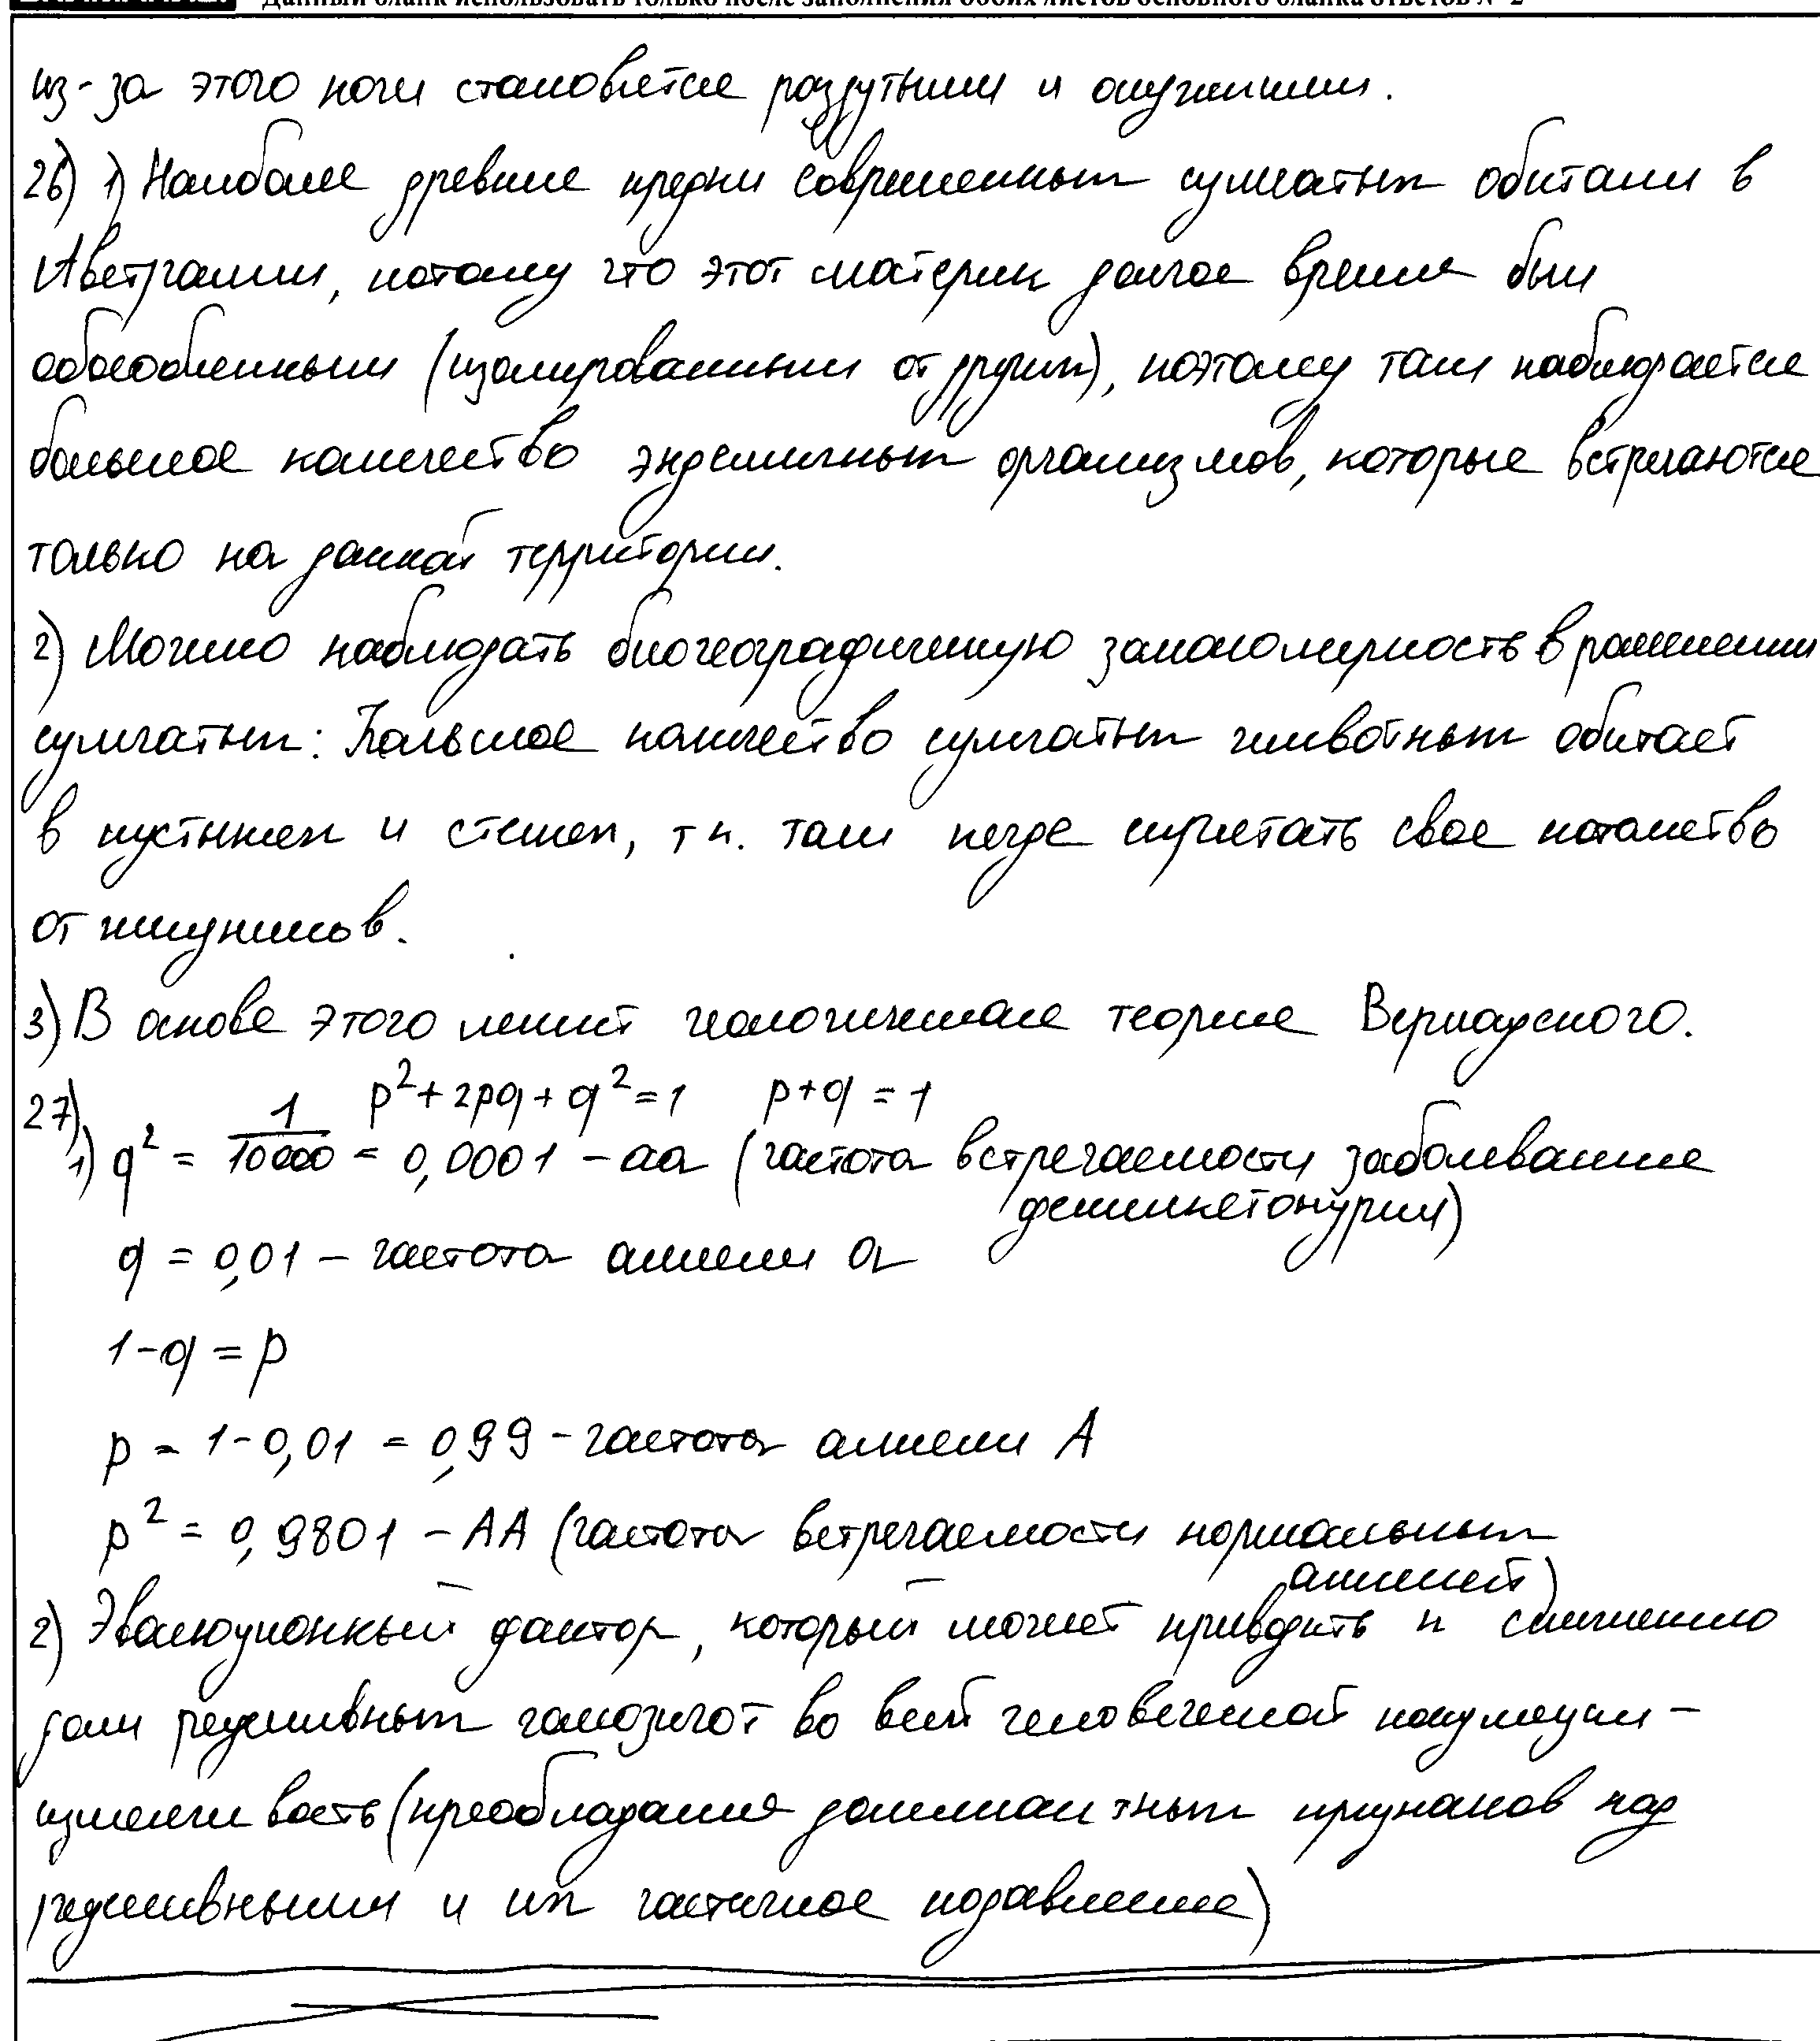 Данный бланк использовать только после заполнения обоих листов основного бланка ответов № 2
из-за этого ноги становятся раздутыми и опухшими.
26) 1) Наиболее древние предки современных сумчатых обитали в
Австралии, потому что этот материк долгое время был
обособленным (изолированным от других), поэтому там наблюдается
большое количество эндемичных организмов, которые встречаются
только на данной территории.
2) Можно наблюдать биогеографическую закономерность в
сумчатых: Большое количество сумчатых животных обитает
в пустынях и степях, т к. там негде спрятать свое потомство
от хищников.
3) В основе этого лежит геологическая теория Вернадского.
27) p² + 2pq + q² = 1 p + q = 1
1) q² = 1/10000 = 0,0001 – aa (частота встречаемости заболевание
фенилкетонурии)
q = 0,01 – частота аллели a
1 - q = p
p = 1 - 0,01 = 0,99 - частота аллели A
p² = 0,9801 – AA (частота встречаемости нормальных
аллелей)
2) Эволюционный фактор, который может приводить к снижению
доли рецессивных гомозигот во всей человеческой популяции –
изменчивость (преобладания доминантных признаков над
рецессивными и их частичное подавление)